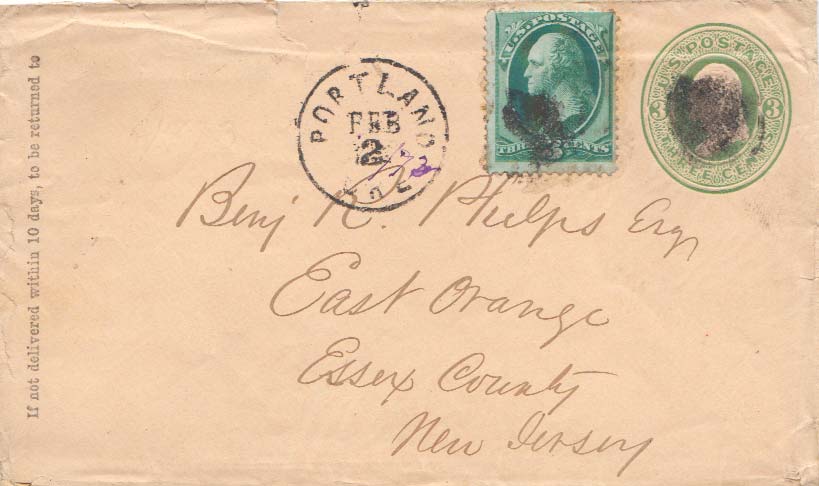 If not delivered within 10 days, to be returned to
PORTLAND
FEB
2
ORE
U.S. POSTAGE
THREE CENTS
U.S. POSTAGE
3 3
THREE CENTS
Benj R. Phelps Esqr
East Orange
Essex County
New Jersey